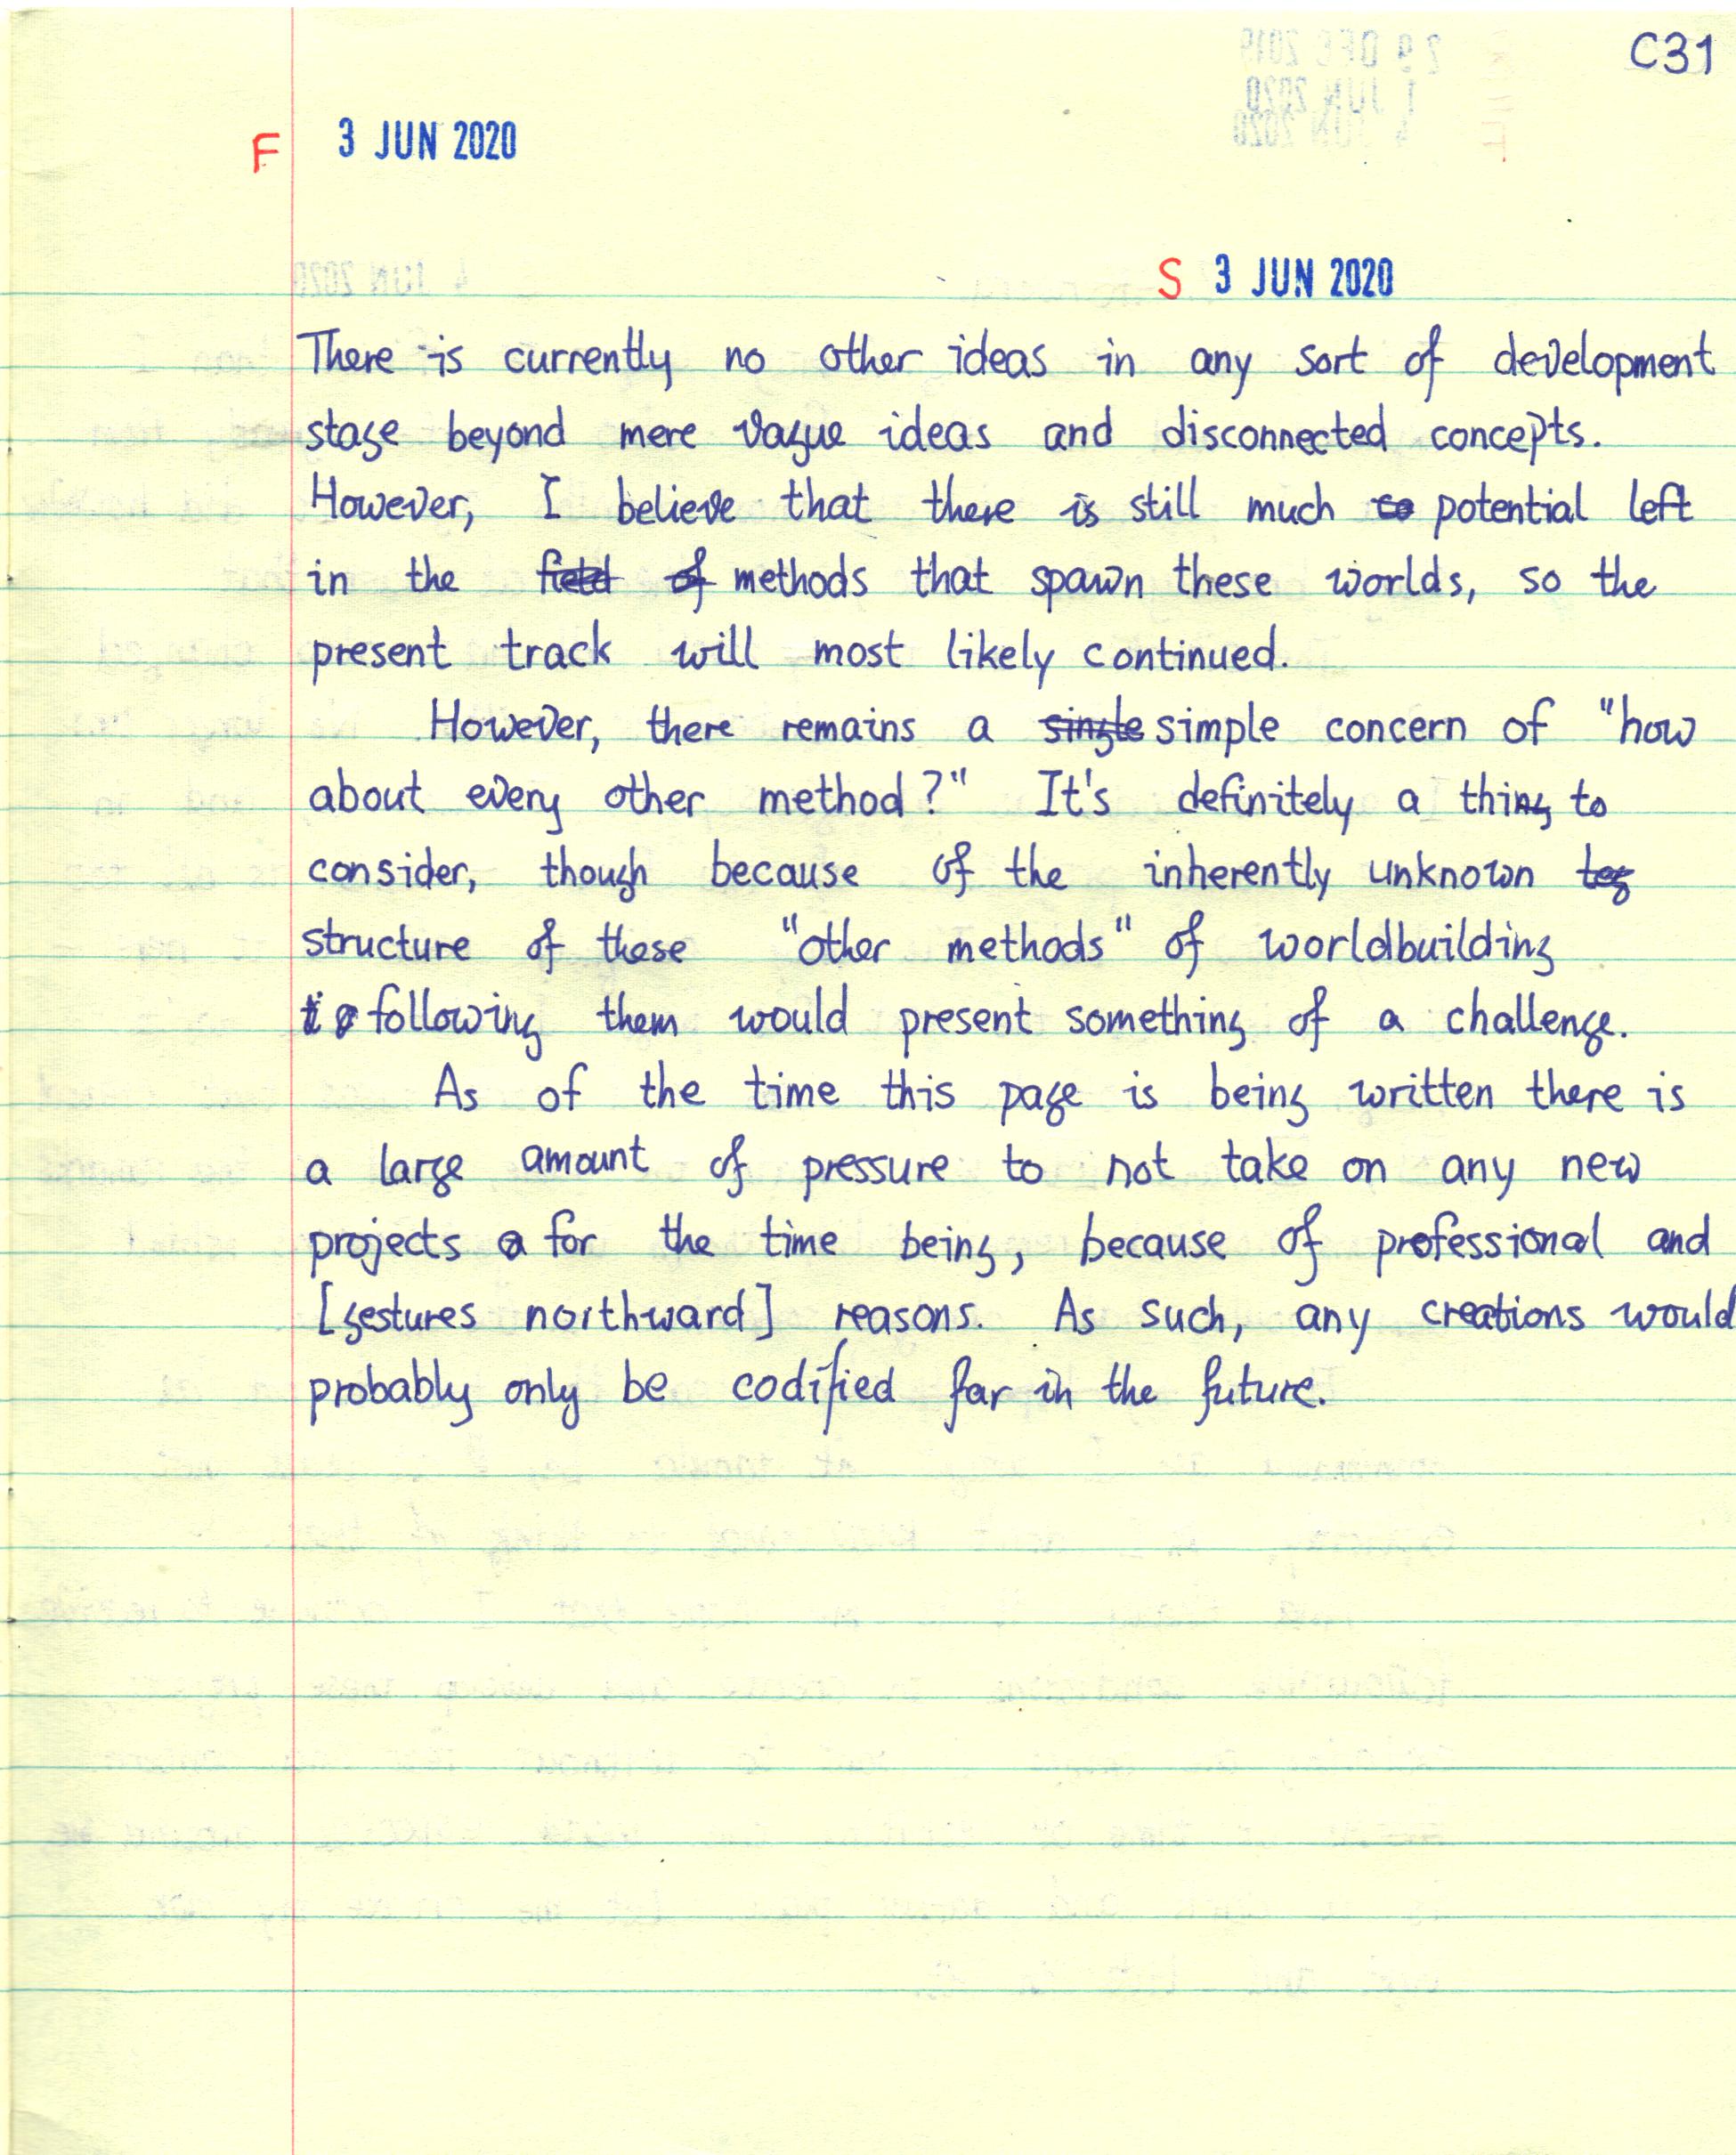 C31
F 3 JUN 2020
S 3 JUN 2020
There is currently no other ideas in any sort of development
stage beyond mere vague ideas and disconnected concepts.
However, I believe that there is still much potential left
in the field of methods that spawn these worlds, so the
present track will most likely continued.
However, there remains a single simple concern of "how
about every other method?" It's definitely a thing to
consider, though because of the inherently unknown
structure of these "other methods" of worldbuilding
following them would present something of a challenge.
As of the time this page is being written there is
a large amount of pressure to not take on any new
projects for the time being, because of professional and
[gestures northward] reasons. As such, any creations would
probably only be codified far in the future.